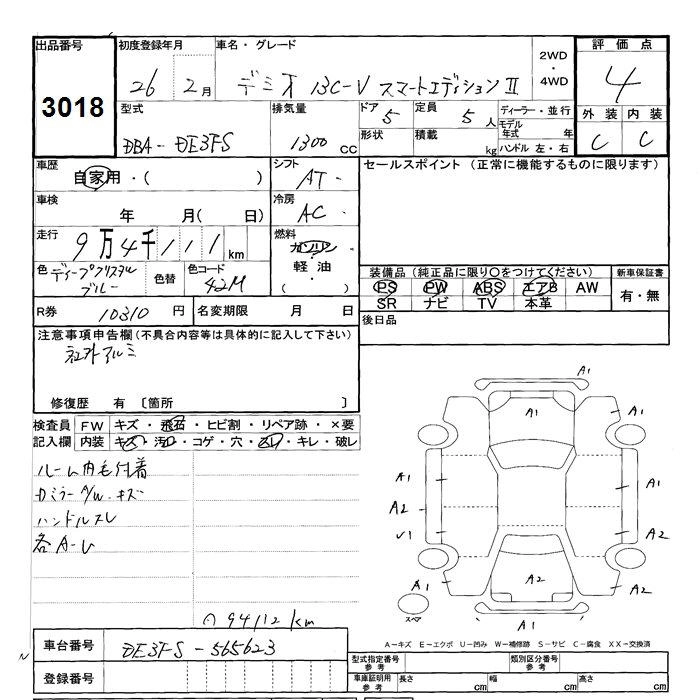 出品番号 初度登録年月 車名・グレード 2WD・4WD 評価点
3018 26 2月 デミオ 13C-V スマートエディションⅡ 4
型式 排気量 ドア 5 定員 5人 ディーラー・並行 外装 内装
DBA-DE3FS 1300 CC 形状 積載 kg モデル年式 年 ハンドル 左・右 C C
車歴 自家用・( ) シフト AT・ セールスポイント (正常に機能するものに限ります)
車検 年 月(日) 冷房 AC・
走行 9万4千111km 燃料 ガソリン・軽油・( )
色 ディープクリスタルブルー 色替 色コード 42M
装備品(純正品に限り○をつけてください) 新車保証書
PS PW ABS エアB AW 有・無
SR ナビ TV 本革
R券 10310円 名変期限 月 日 後日品
注意事項申告欄(不具合内容等は具体的に記入して下さい)
社外アルミ
修復歴 有 〔箇所 〕
検査員 FW キズ・飛石・ヒビ割・リペア跡・×要
記入欄 内装 キズ・汚れ・コゲ・穴・スレ・キレ・破レ
ルーム内毛付着
ハンドルスレ
各A-U
94112km
A1
A1
A1 A1
A2
A1 A2
A1 A2 A2
スペア A1
A-キズ E-エクボ U-凹み W-補修跡 S-サビ C-腐食 XX-交換済
車台番号 DE3FS-565623
登録番号
型式指定番号 参考 類別区分番号 参考
車庫証明用 参考 長さ cm 幅 cm 高さ cm